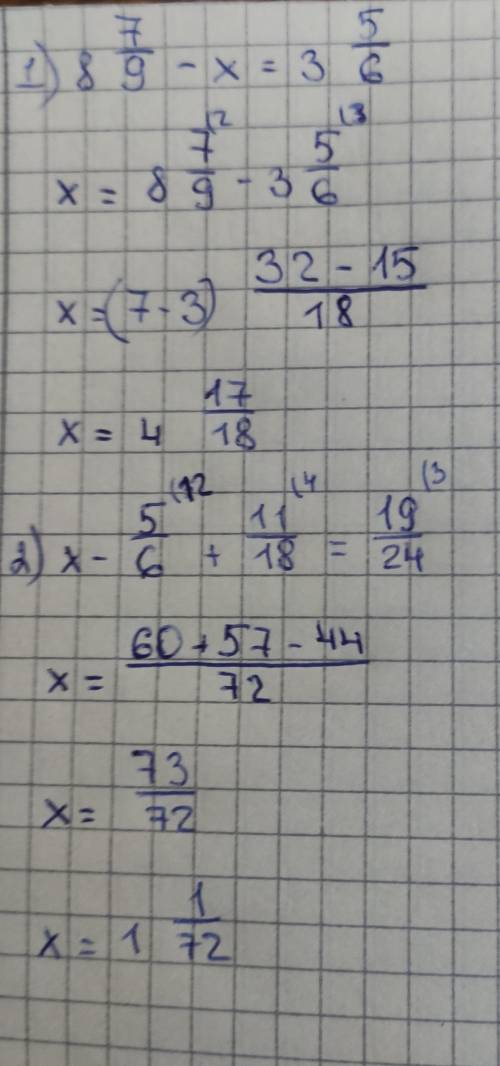 1) 8 7/9 - x = 3 5/6
x = 8 7/9 (2 - 3 5/6 (3
x = (7 - 3) (32 - 15)/18
x = 4 17/18
2) x - 5/6 (12 + 11/18 (4 = 19/24 (3
x = (60 + 57 - 44)/72
x = 73/72
x = 1 1/72